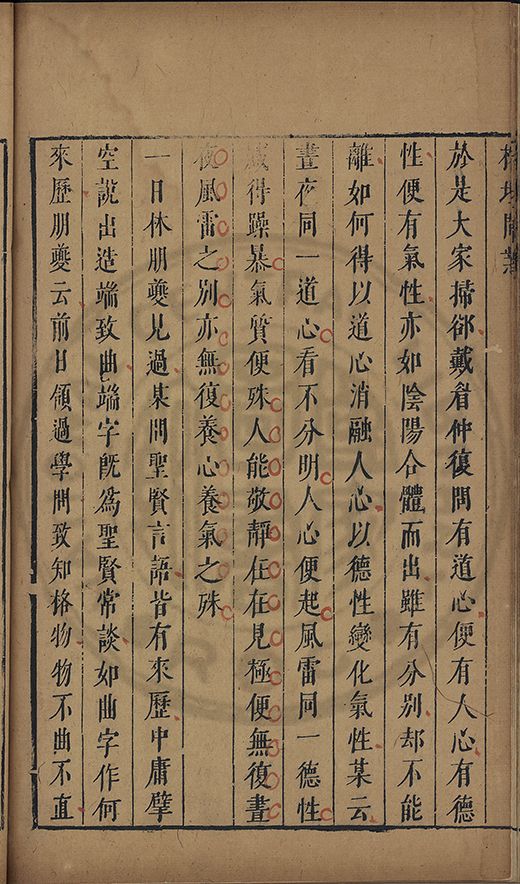 榕壇問業
於是大家掃郤戴看仲復問有道心便有人心有德
性便有氣性亦如陰陽合體而出雖有分別却不能
離如何得以道心消融人心以德性變化氣性某云
晝夜同一道心看不分明人心便起風雷同一德性
得躁暴氣質便殊人能敬靜在在見極便無復晝
夜風雷之別亦無復養心養氣之殊
一日休朋夔見過某問聖賢言語皆有來歷中庸擘
空說出造端致曲端字旣爲聖賢常談如曲字作何
來歷朋夔云前日領過學問致知格物物不曲不直